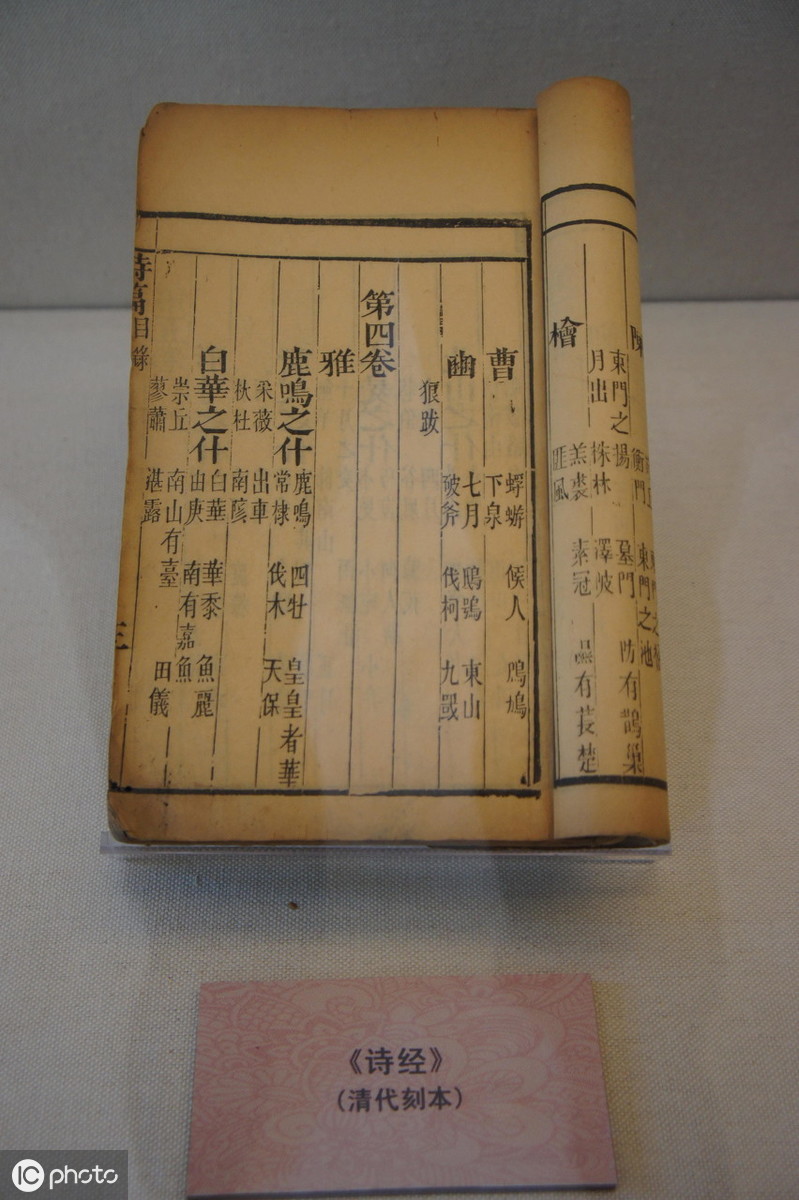 衡門 東門之池
東門之楊 墓門 防有鵲巢
月出 株林 澤陂
檜 羔裘 素冠 有萇楚
匪風
曹 蜉蝣 候人 鳲鳩
下泉
豳 七月 鴟鴞 東山
破斧 伐柯 九罭
狼跋
第四卷
雅
鹿鳴之什 鹿鳴 四牡 皇皇者華
常棣 伐木 天保
采薇 出車
杕杜 南陔
白華之什 白華 華黍 魚麗
由庚 南有嘉魚
崇丘 南山有臺 由儀
蓼蕭 湛露
詩篇目錄 三
《诗经》
(清代刻本)
IC photo